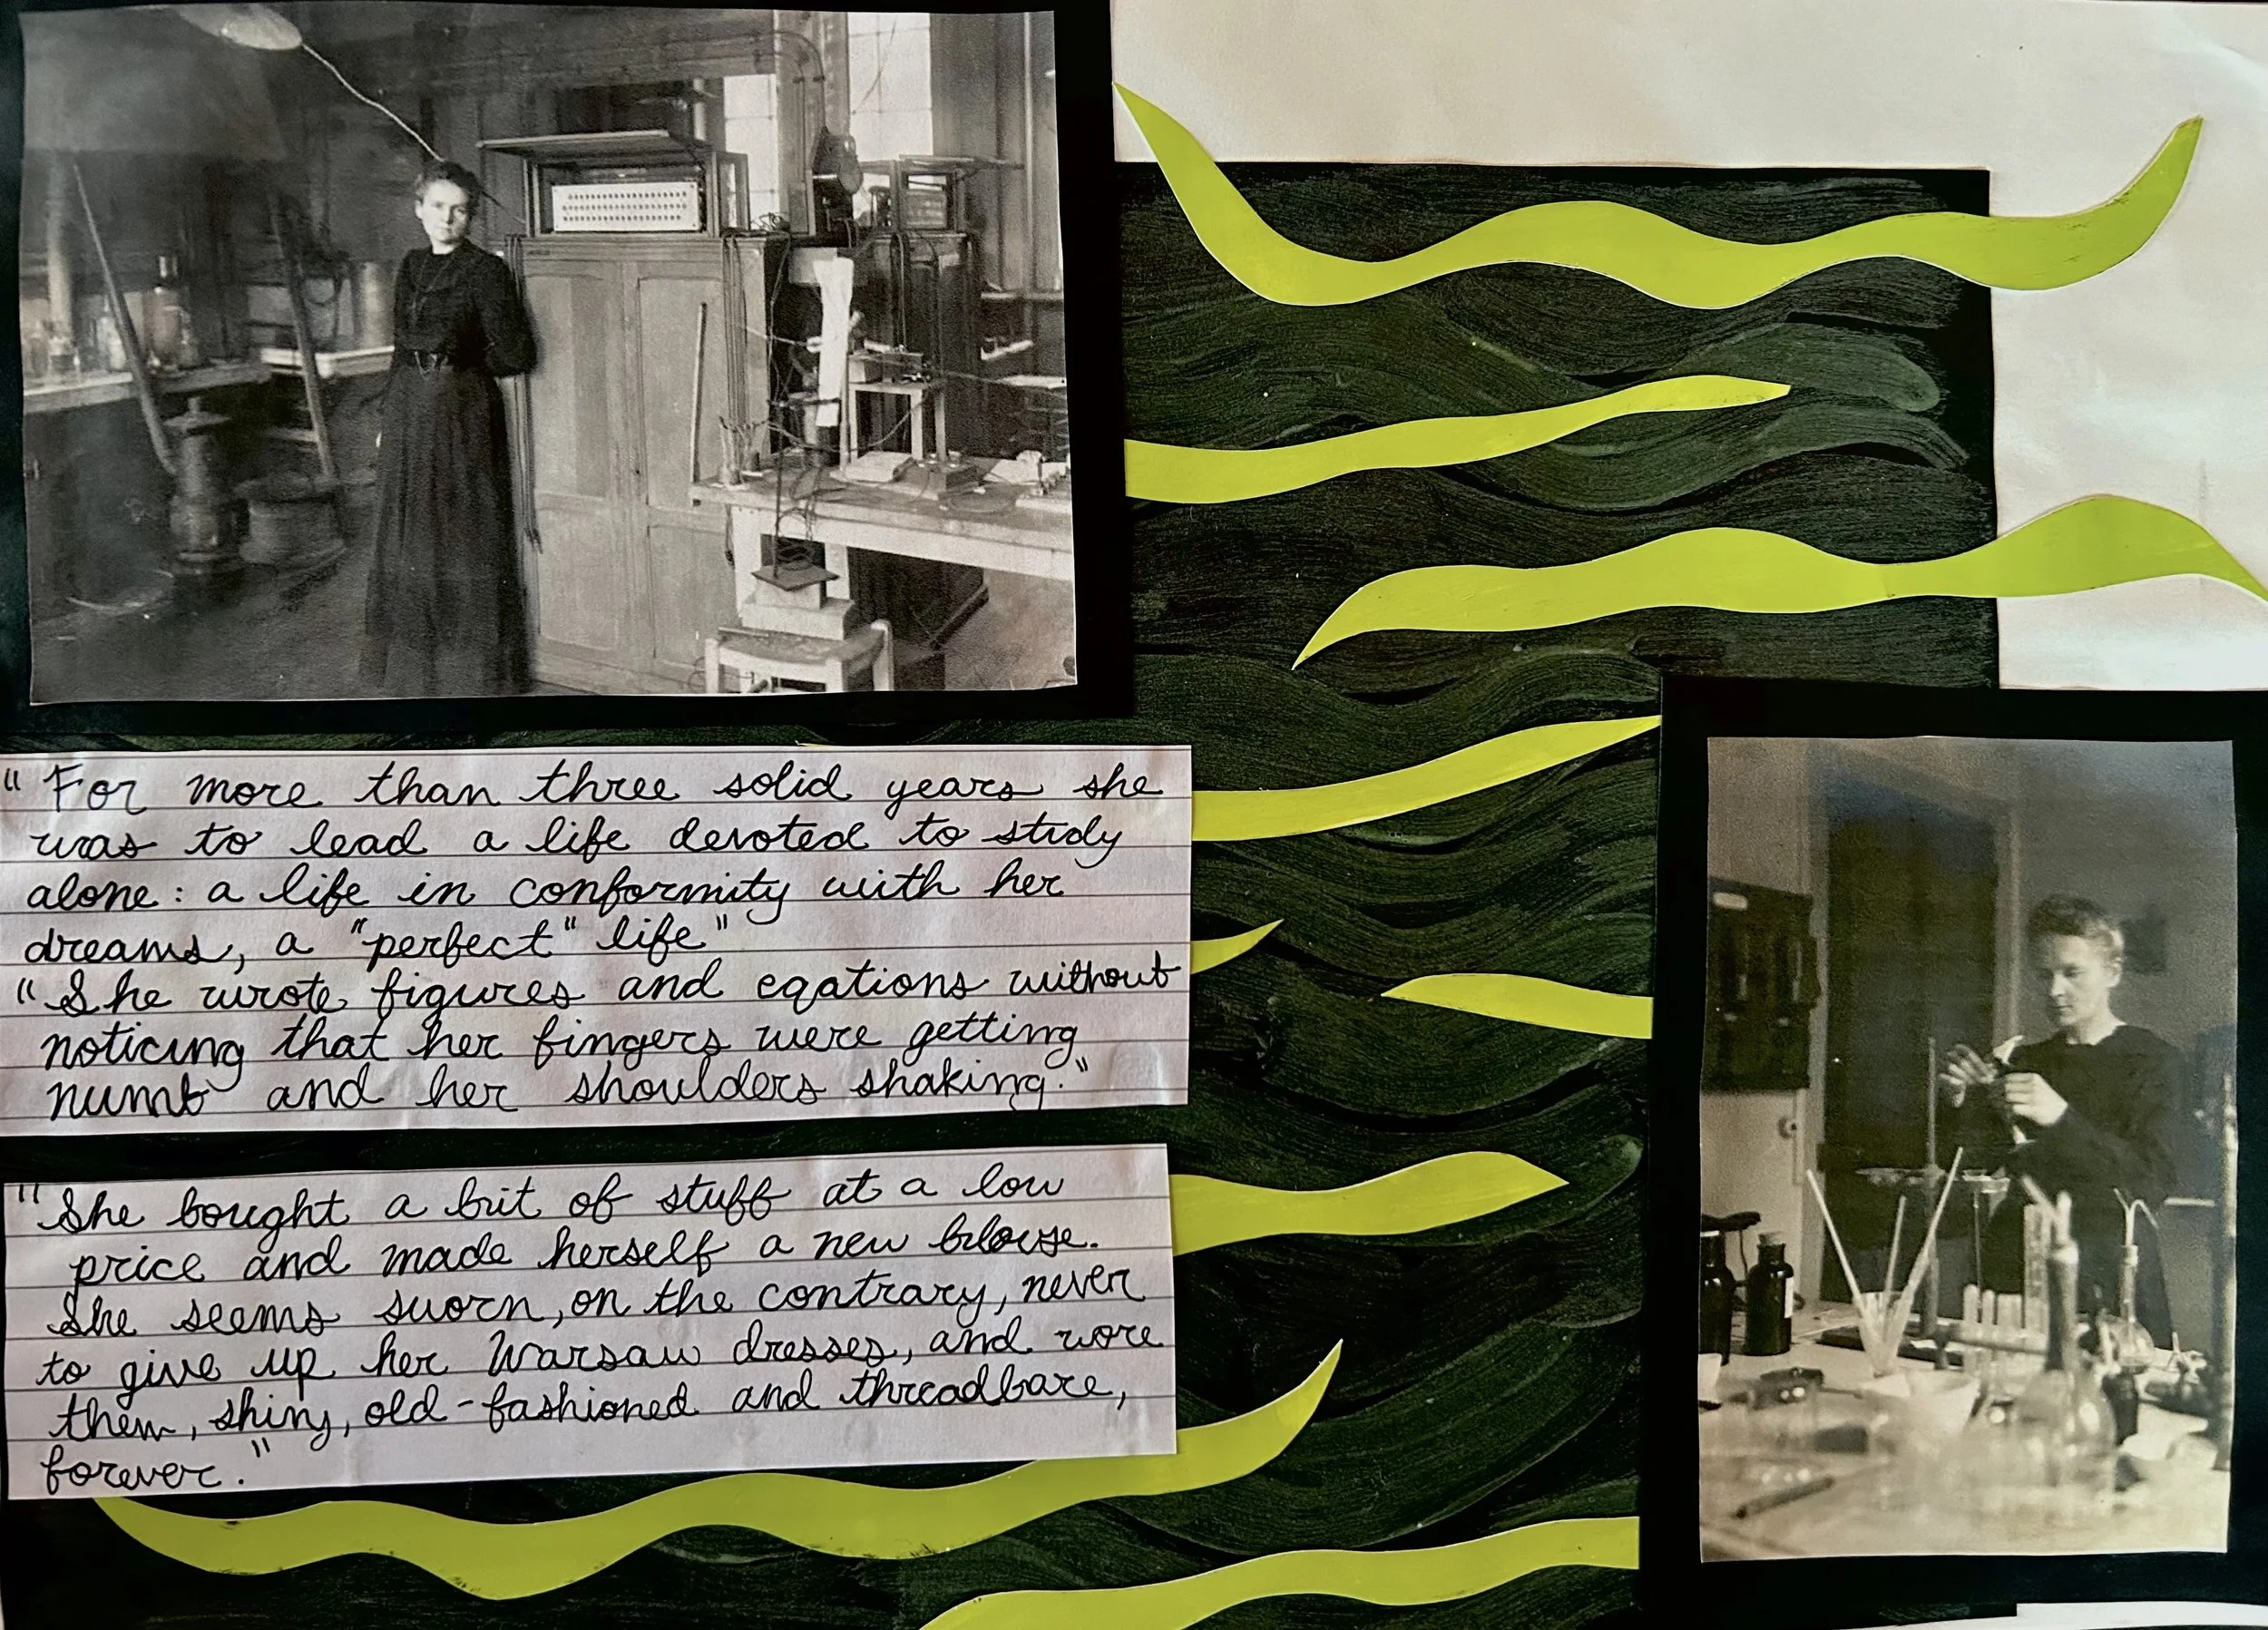 "For more than three solid years she
was to lead a life devoted to study
alone: a life in conformity with her
dreams, a "perfect" life"
"She wrote figures and eqations without
noticing that her fingers were getting
numb and her shoulders shaking."
"She bought a bit of stuff at a low
price and made herself a new blouse.
She seems sworn, on the contrary, never
to give up her Warsaw dresses, and wore
them, shiny, old-fashioned and threadbare,
forever."